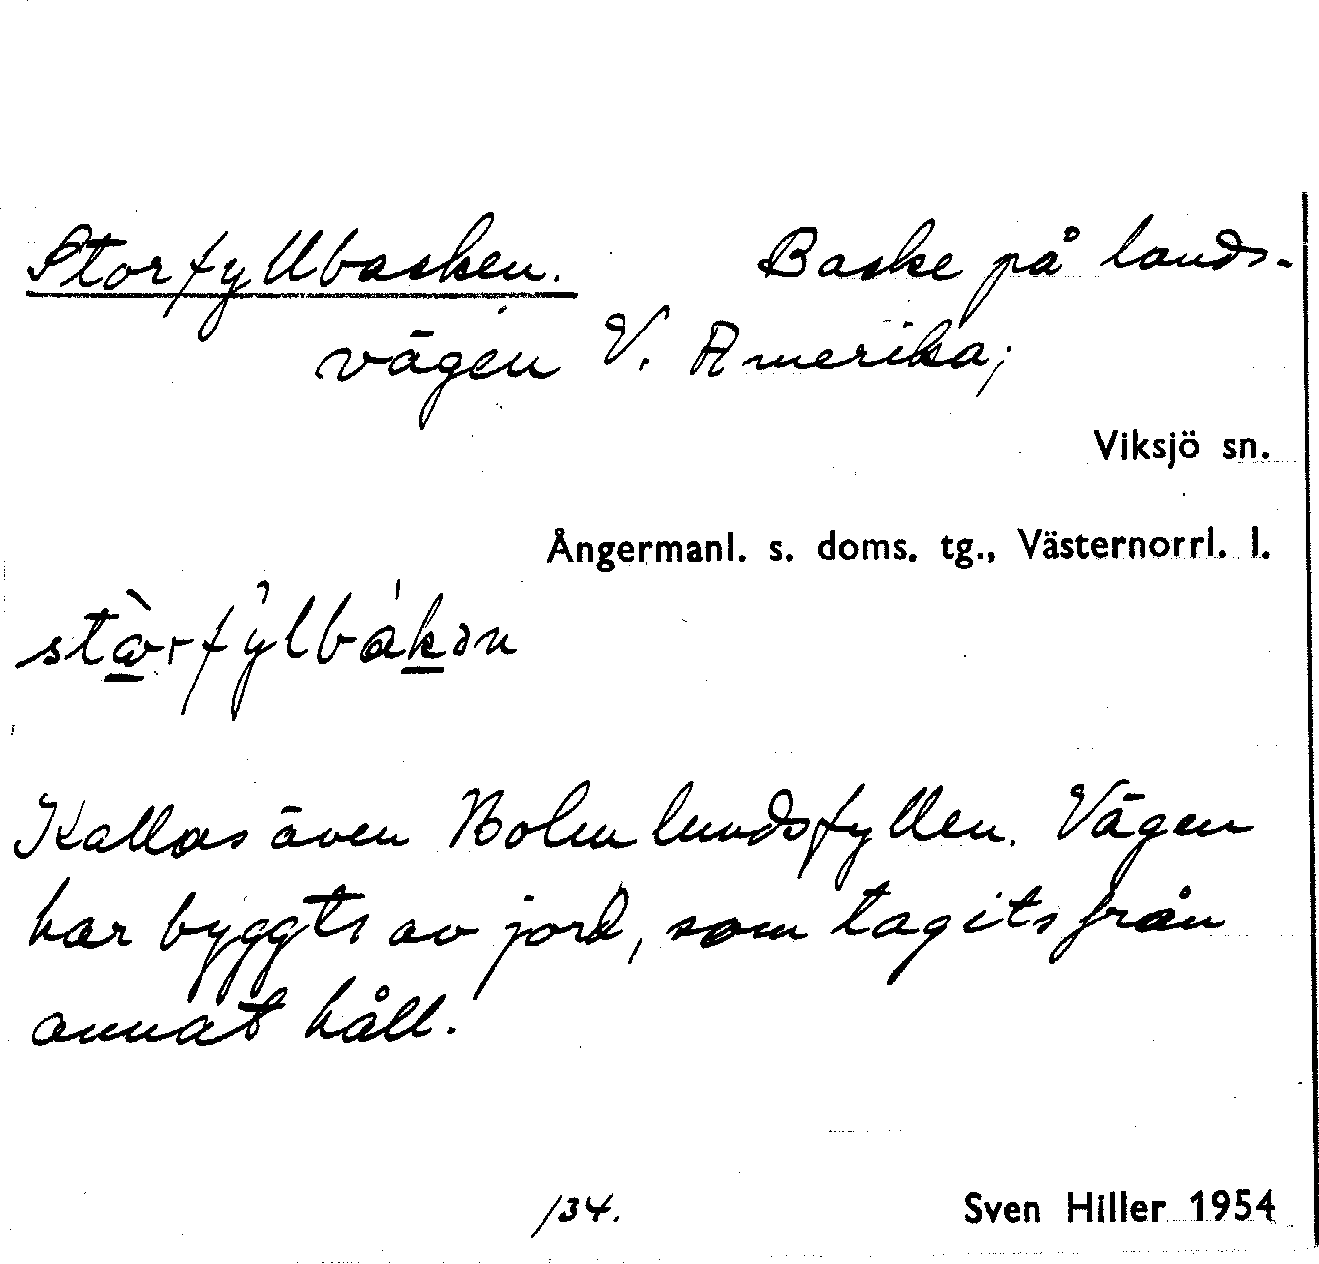 Storfyllbacken. Backe på lands-
vägen V. Amerika;
Viksjö sn.
Ångermanl. s. doms. tg., Västernorrl. l.
stòrfy̓lbákən
Kallas även Holmlundsfyllen. Vägen
har byggts av jord, som tagits från
annat håll.
134.
Sven Hiller 1954